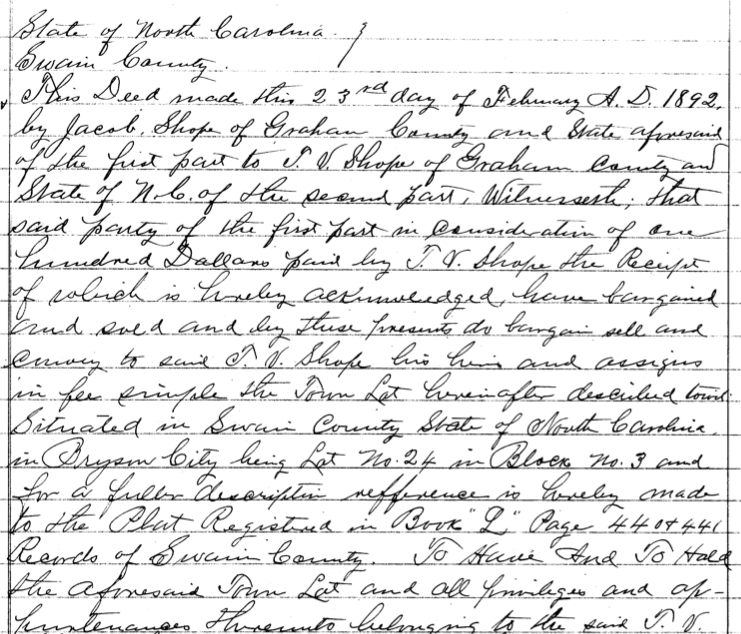 State of North Carolina }
Swain County.
This Deed made this 23rd day of February A.D. 1892.
by Jacob. Shope of Graham County and State aforesaid
of the first part to T. V. Shope of Graham County and
State of N.C. of the second part, Witnesseth; that
said party of the first part in consideration of one
hundred Dallars paid by T. V. Shope the Receipt
of which is hereby acknowledged, have bargained
and sold and by these presents do bargain sell and
convey to said T. V. Shope his heirs and assigns
in fee simple the Town Lot hereinafter described towit.
Situated in Swain County State of North Carolina.
in Bryson City being Lot No. 24 in Block No. 3 and
for a fuller description refference is hereby made
to the Plat Registered in Book "L" Page 440 & 441
Records of Swain County. To Have And To Hold
the aforesaid Town Lot and all privileges and ap-
purtenances thereunto belonging to the said T. V.